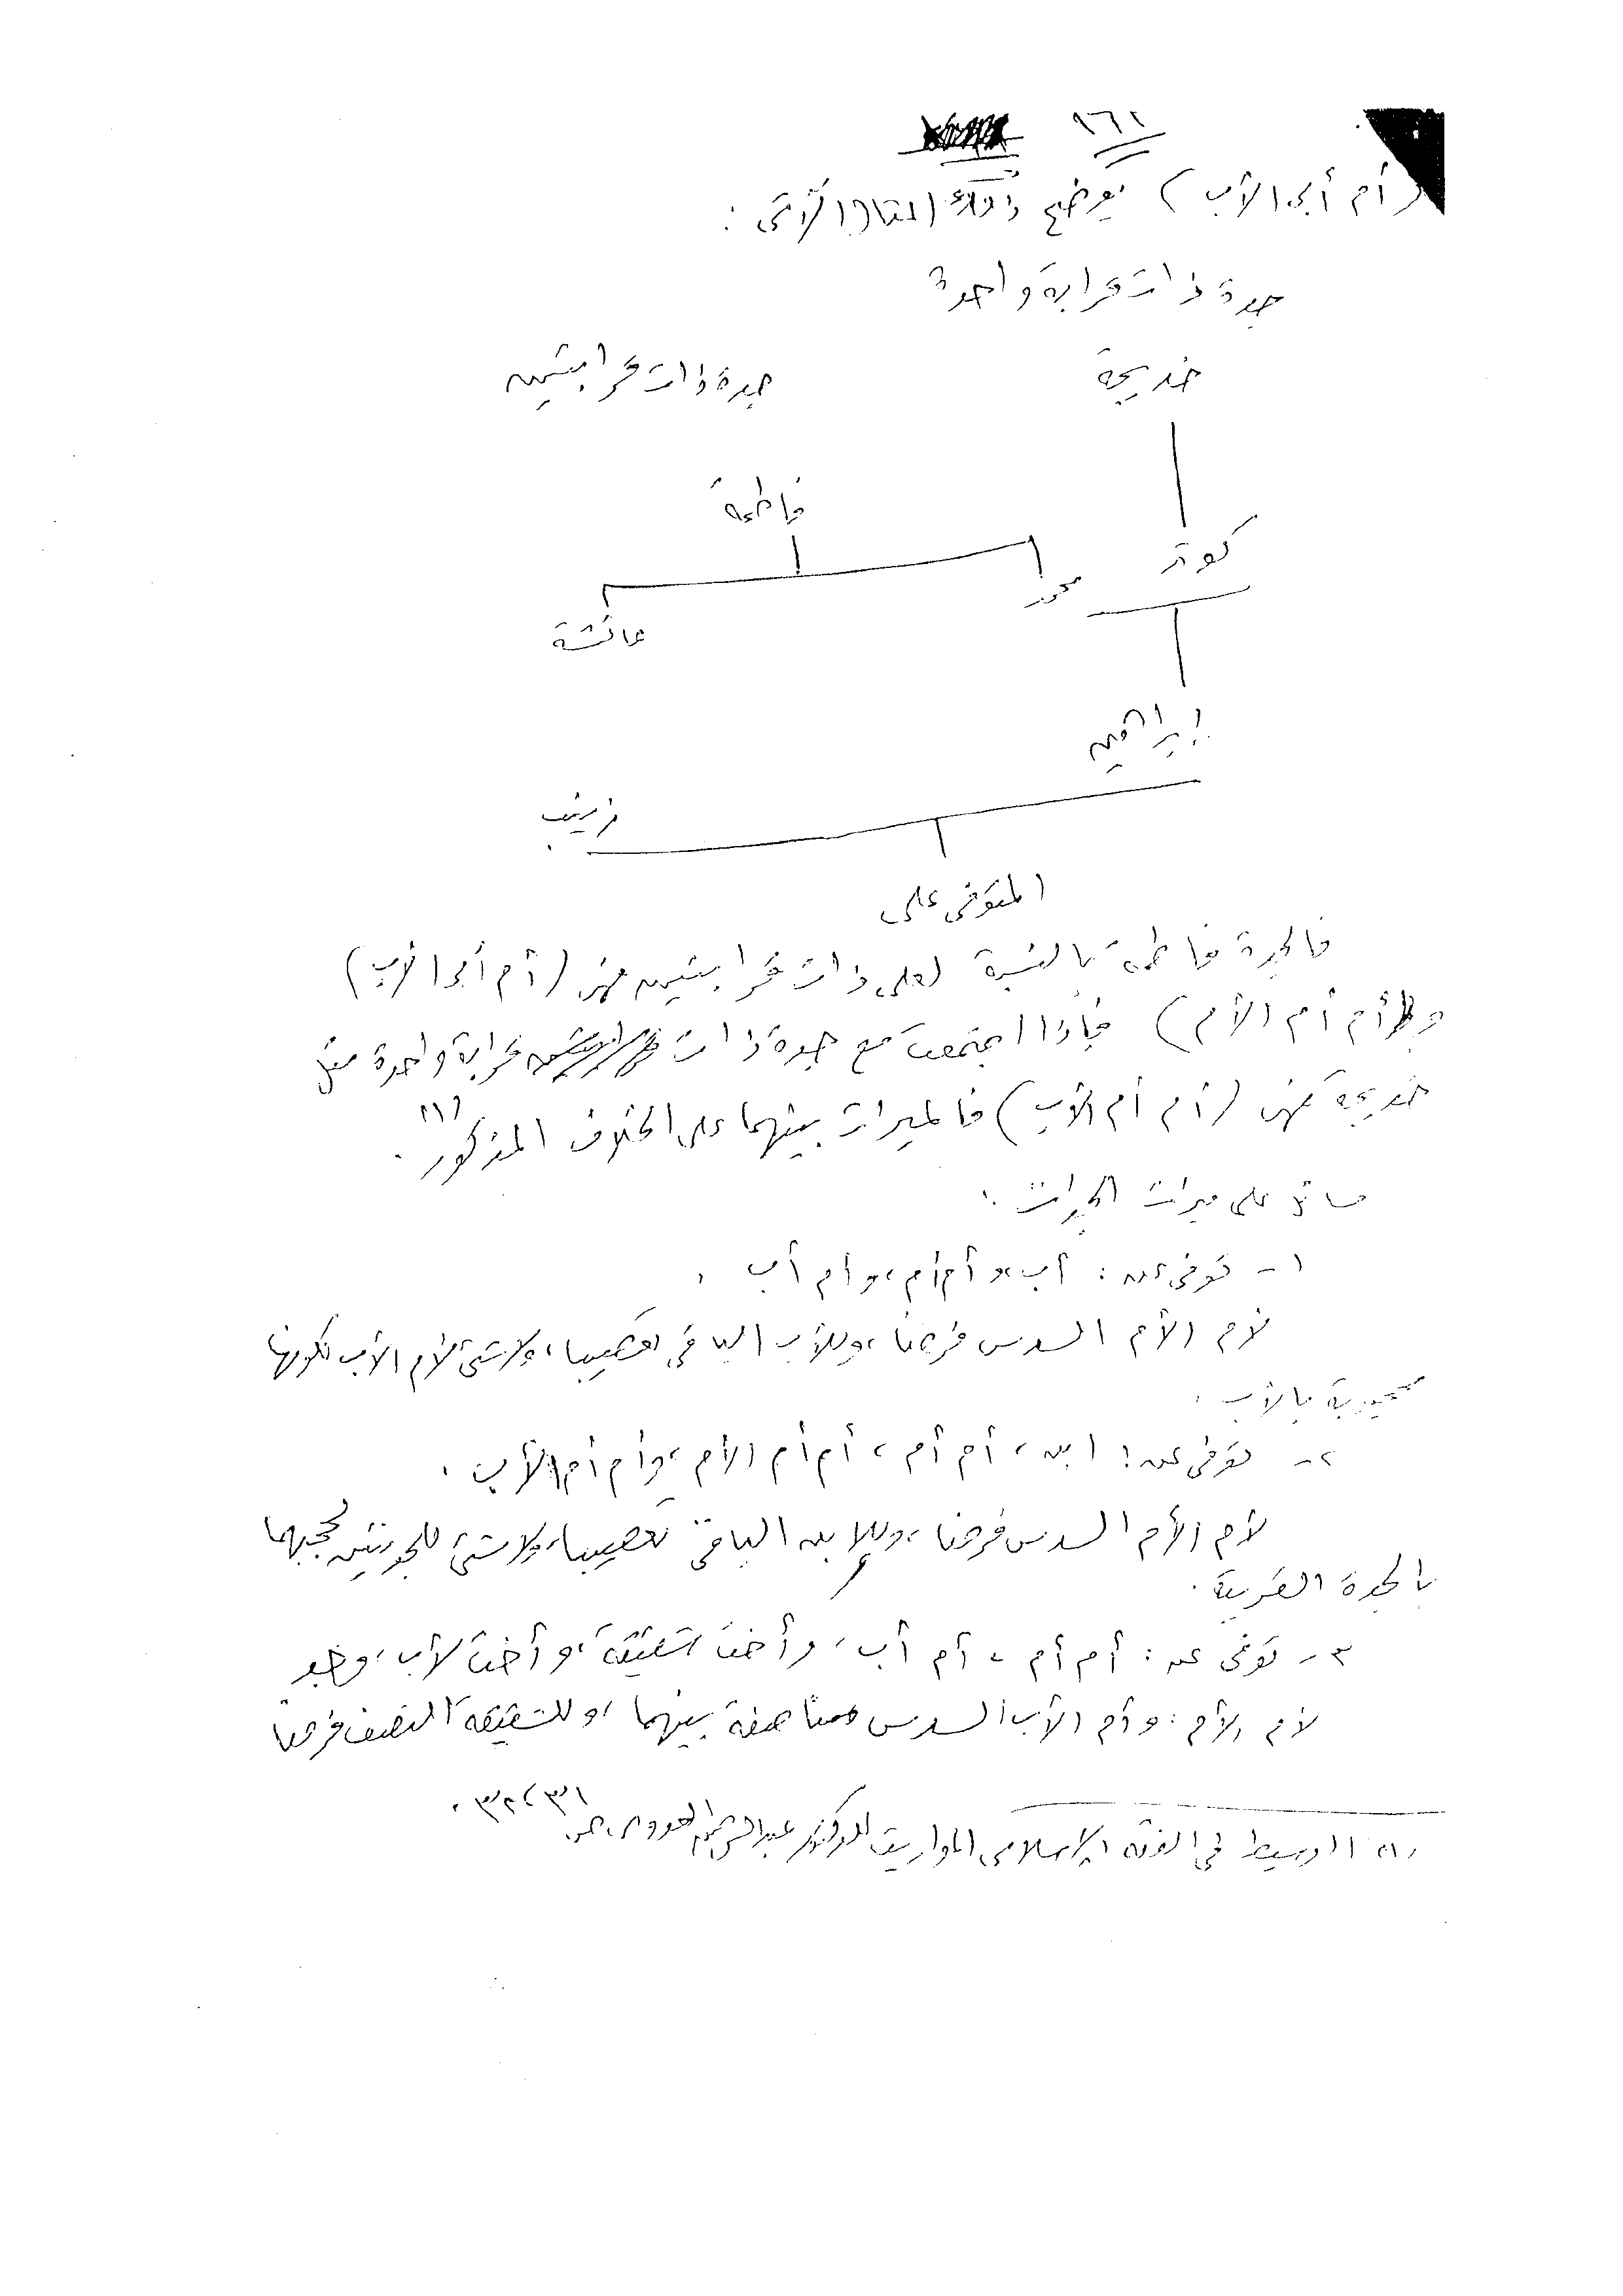 ١٦١
(أم أبى الأب) يوضح ذلك المثال الآتى :
جدة ذات قرابة واحدة
خديجة
جدة ذات قرابتين
فاطمة
كوثر
محمد
عائشة
إبراهيم
زينب
المتوفى على
فالجدة فاطمة بالنسبة لعلى ذات قرابتين فهى (أم أبى الأب)
و(أم أم الأم) فإذا اجتمعت مع جدة ذات قرابة واحدة مثل
خديجة فهى (أم أم الأب) فالميراث بينهما على الخلاف المذكور (١) .
مسائل على ميراث الجدات :
١ – توفى عن : أب، وأم أم، وأم أب .
لأم الأم السدس فرضا، وللأب الباقى تعصيبا، ولا شئ لأم الأب لكونها
محجوبة بالأب .
٢ – توفى عن : ابن ، أم أم ، أم أم الأم ، وأم أم الأب .
لأم الأم السدس فرضا، وللابن الباقى تعصيبا، ولا شئ للجدتين لحجبهما
بالجدة القريبة .
٣ – توفى عن : أم أم ، أم أب ، وأخت شقيقة ، وأخت لأب ، وجد
لأم الأم : وأم الأب السدس مناصفة بينهما ، وللشقيقة النصف فرضا
(١) الوسيط فى الفقه الإسلامى المواريث للدكتور عبد الرحمن العدوى ص